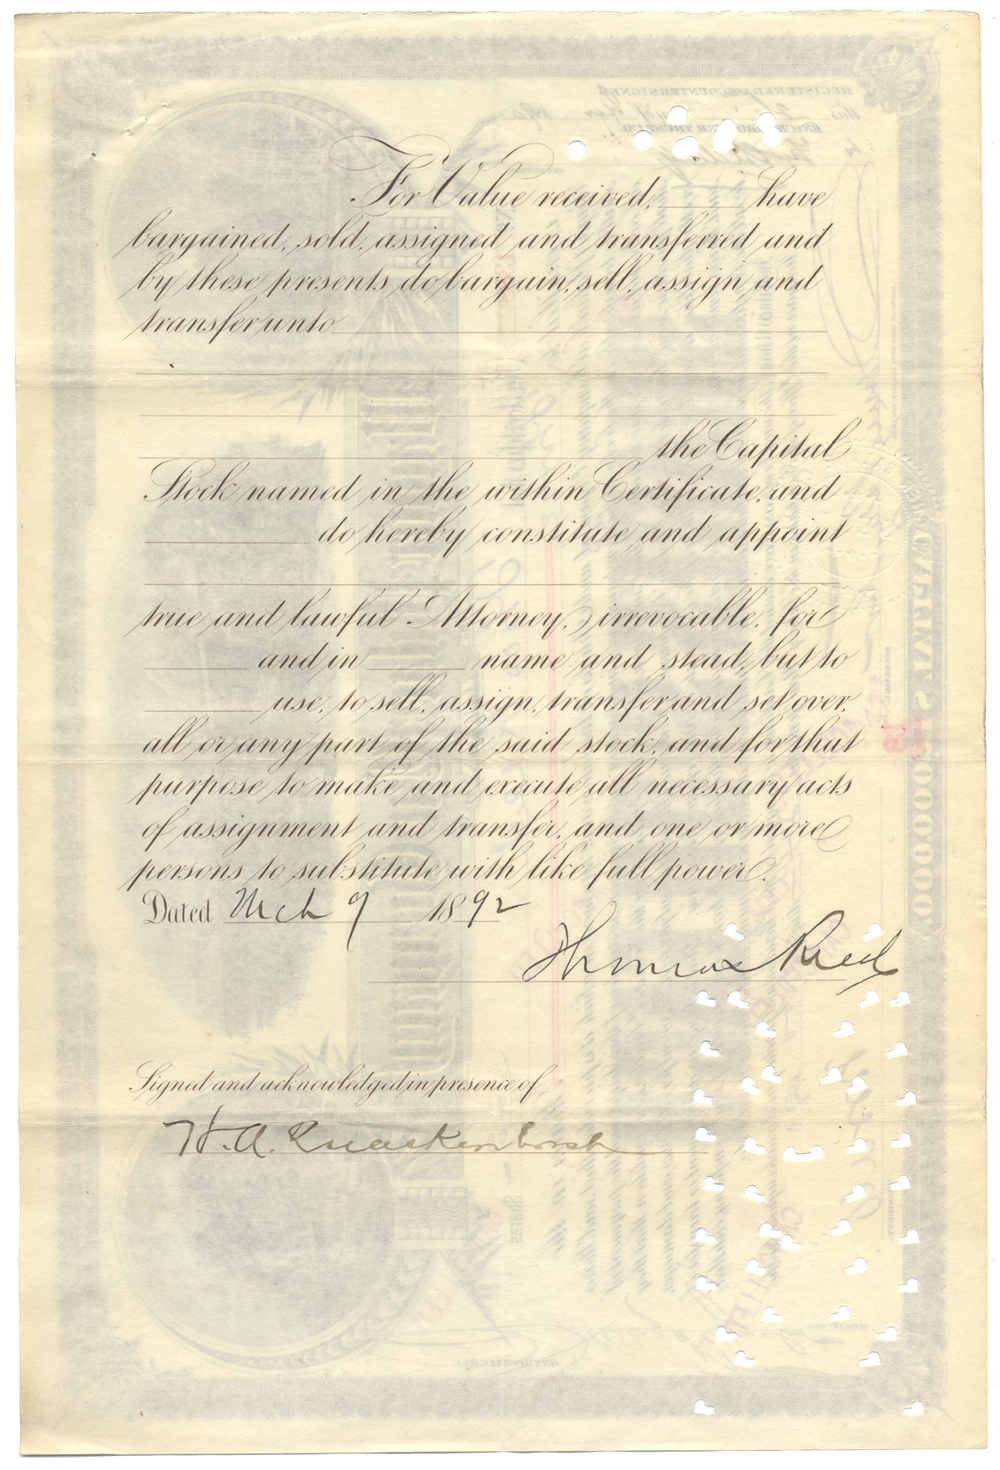 For Value received, have
bargained, sold, assigned and transferred and
by these presents do bargain, sell, assign and
transfer unto
the Capital
Stock named in the within Certificate, and
do hereby constitute and appoint
true and lawful Attorney, irrevocable, for
and in name and stead, but to
use, to sell, assign, transfer and set over,
all or any part of the said stock, and for that
purpose to make and execute all necessary acts
of assignment and transfer, and one or more
persons to substitute with like full power.
Dated Mch 9 1892
Thomas Reed
Signed and acknowledged in presence of
H. A. Quackenbush